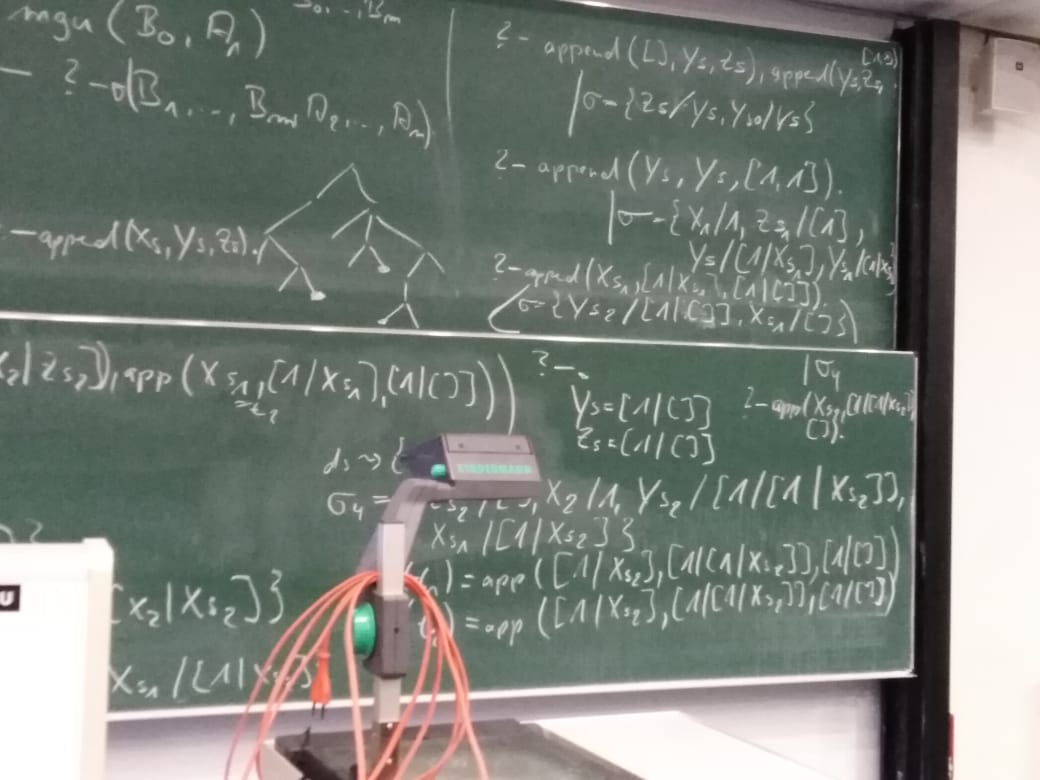 mgu (B₀, A₁)
B₀, .., Bₘ
?- σ(B₁, ..., Bₘ, A₂, ..., Aₙ)
-append(Xs, Ys, Zs).
?- append([], Ys, Zs), append(Ys, Zs,
σ={Zs/Ys, Ys₀/Ys}
?- append(Ys, Ys, [1,1]).
σ={X₁/1, Zs₁/[1],
Ys/[1|Xs₁], Ys₁/[1|Xs
?-append(Xs₁, [1|Xs₁], [1|[]]).
σ={Ys₂/[1|[]], Xs₁/[]}
X₂|Zs₂]), app(Xs₁, [1|Xs₁], [1|[]]))
?-
Ys=[1|[]]
Zs=[1|[]]
|σ₄
?-app(Xs₂, [1|[1|Xs₂]]
[]).
ds ⇝ {
KINDERMANN
σ₄ = X₂/1, Ys₂/[1|[1|Xs₂]],
Xs₁/[1|Xs₂]}
= app([1|Xs₂], [1|[1|Xs₂]], [1|[]])
= app([1|Xs₂], [1|[1|Xs₂]], [1|[]])
[X₂|Xs₂]}
Xs₁/[1|Xs
U